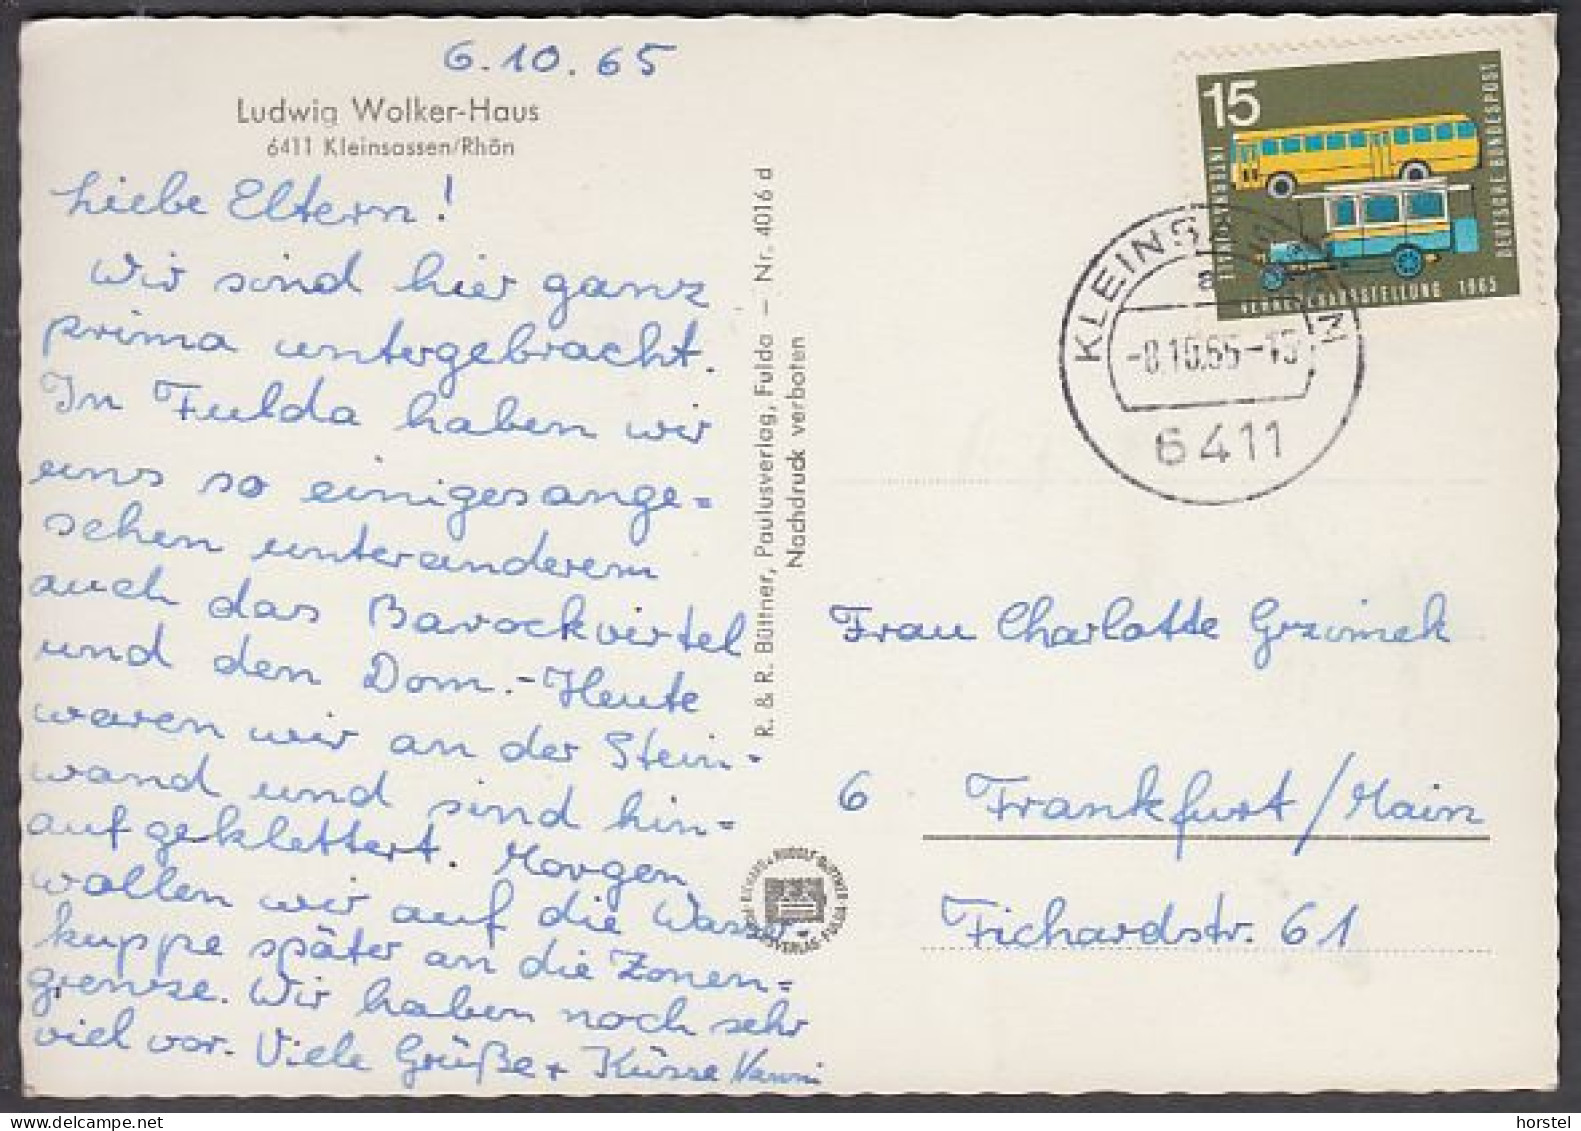 6.10.65
Ludwig Wolker-Haus
6411 Kleinsassen/Rhön
Liebe Eltern!
Wir sind hier ganz
prima untergebracht.
In Fulda haben wir
uns so einiges ange=
sehen unteranderem
auch das Barockvirtel
und den Dom.-Heute
waren wir an der Stein-
wand und sind hin=
aufgeklettert. Morgen
wollen wir auf die Wasser-
kuppe später an die Zonen=
grenze. Wir haben noch sehr
viel vor. Viele Grüße + Küsse
R. & R. Büttner, Paulusverlag, Fulda — Nr. 4016 d
Nachdruck verboten
RUDOLF BÜTTNER · FULDA ·
15
INTERNATIONALE
VERKEHRSAUSSTELLUNG 1965
DEUTSCHE BUNDESPOST
KLEINSASSEN
-8.10.65-
6411
Frau Charlotte Grzimek
6 Frankfurt/Main
Fichardstr. 61
horstel